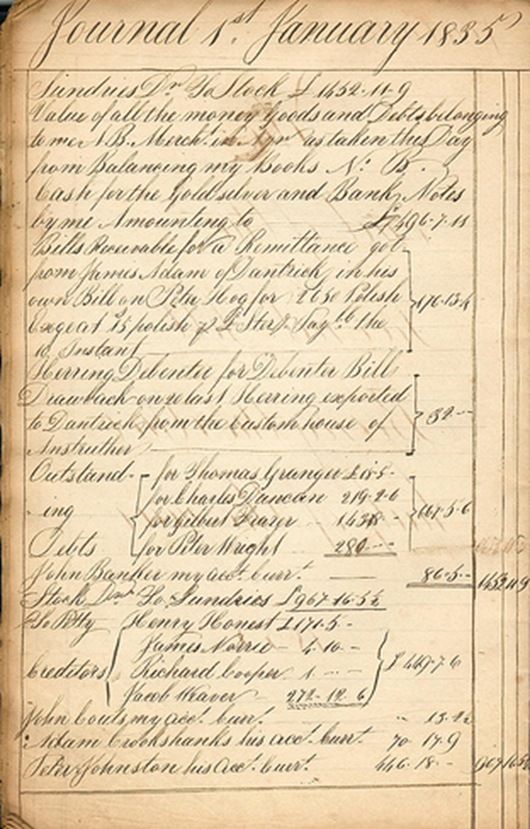 Journal 1st January 1835
Sundries Dr To Stock £ 1452-11-9
Value of all the money Goods and Debts belonging
to me N.B. Mercht in as taken this Day
from Balancing my Books No B.
Cash for the Gold silver and Bank Notes
by me Amounting to £496-7-11
Bills Receivable for a Remittance got
from James Adam of Dantrick in his
own Bill on Peter Hog for 2650 Polish
at 15 polish Payble the 176-13-4
10 Instant
Herring Debenter for Debenter Bill
Drawback on last Herring exported
to Dantrick from the Customhouse of 32--
Anstruther
Outstand- for Thomas Granger £18-5-
for Charles Duncan 219-2-6
ing for Gilbert Frazer 667-5-6
Debts for Peter Wright 280--
John Banker my acct. currt. 86-5-- 1452 11 9
Stock To Sundries £967-16-5½
To Henry Honest £171-5-
James Norrie 4-10-
Creditors Richard Cooper 1-- £449-7-6
Jacob Weaver 272-12-6
John Couts my acct. currt.
Adam Crookshanks his acct. currt. 70-17-9
Peter Johnston his acct. currt. 446-18--